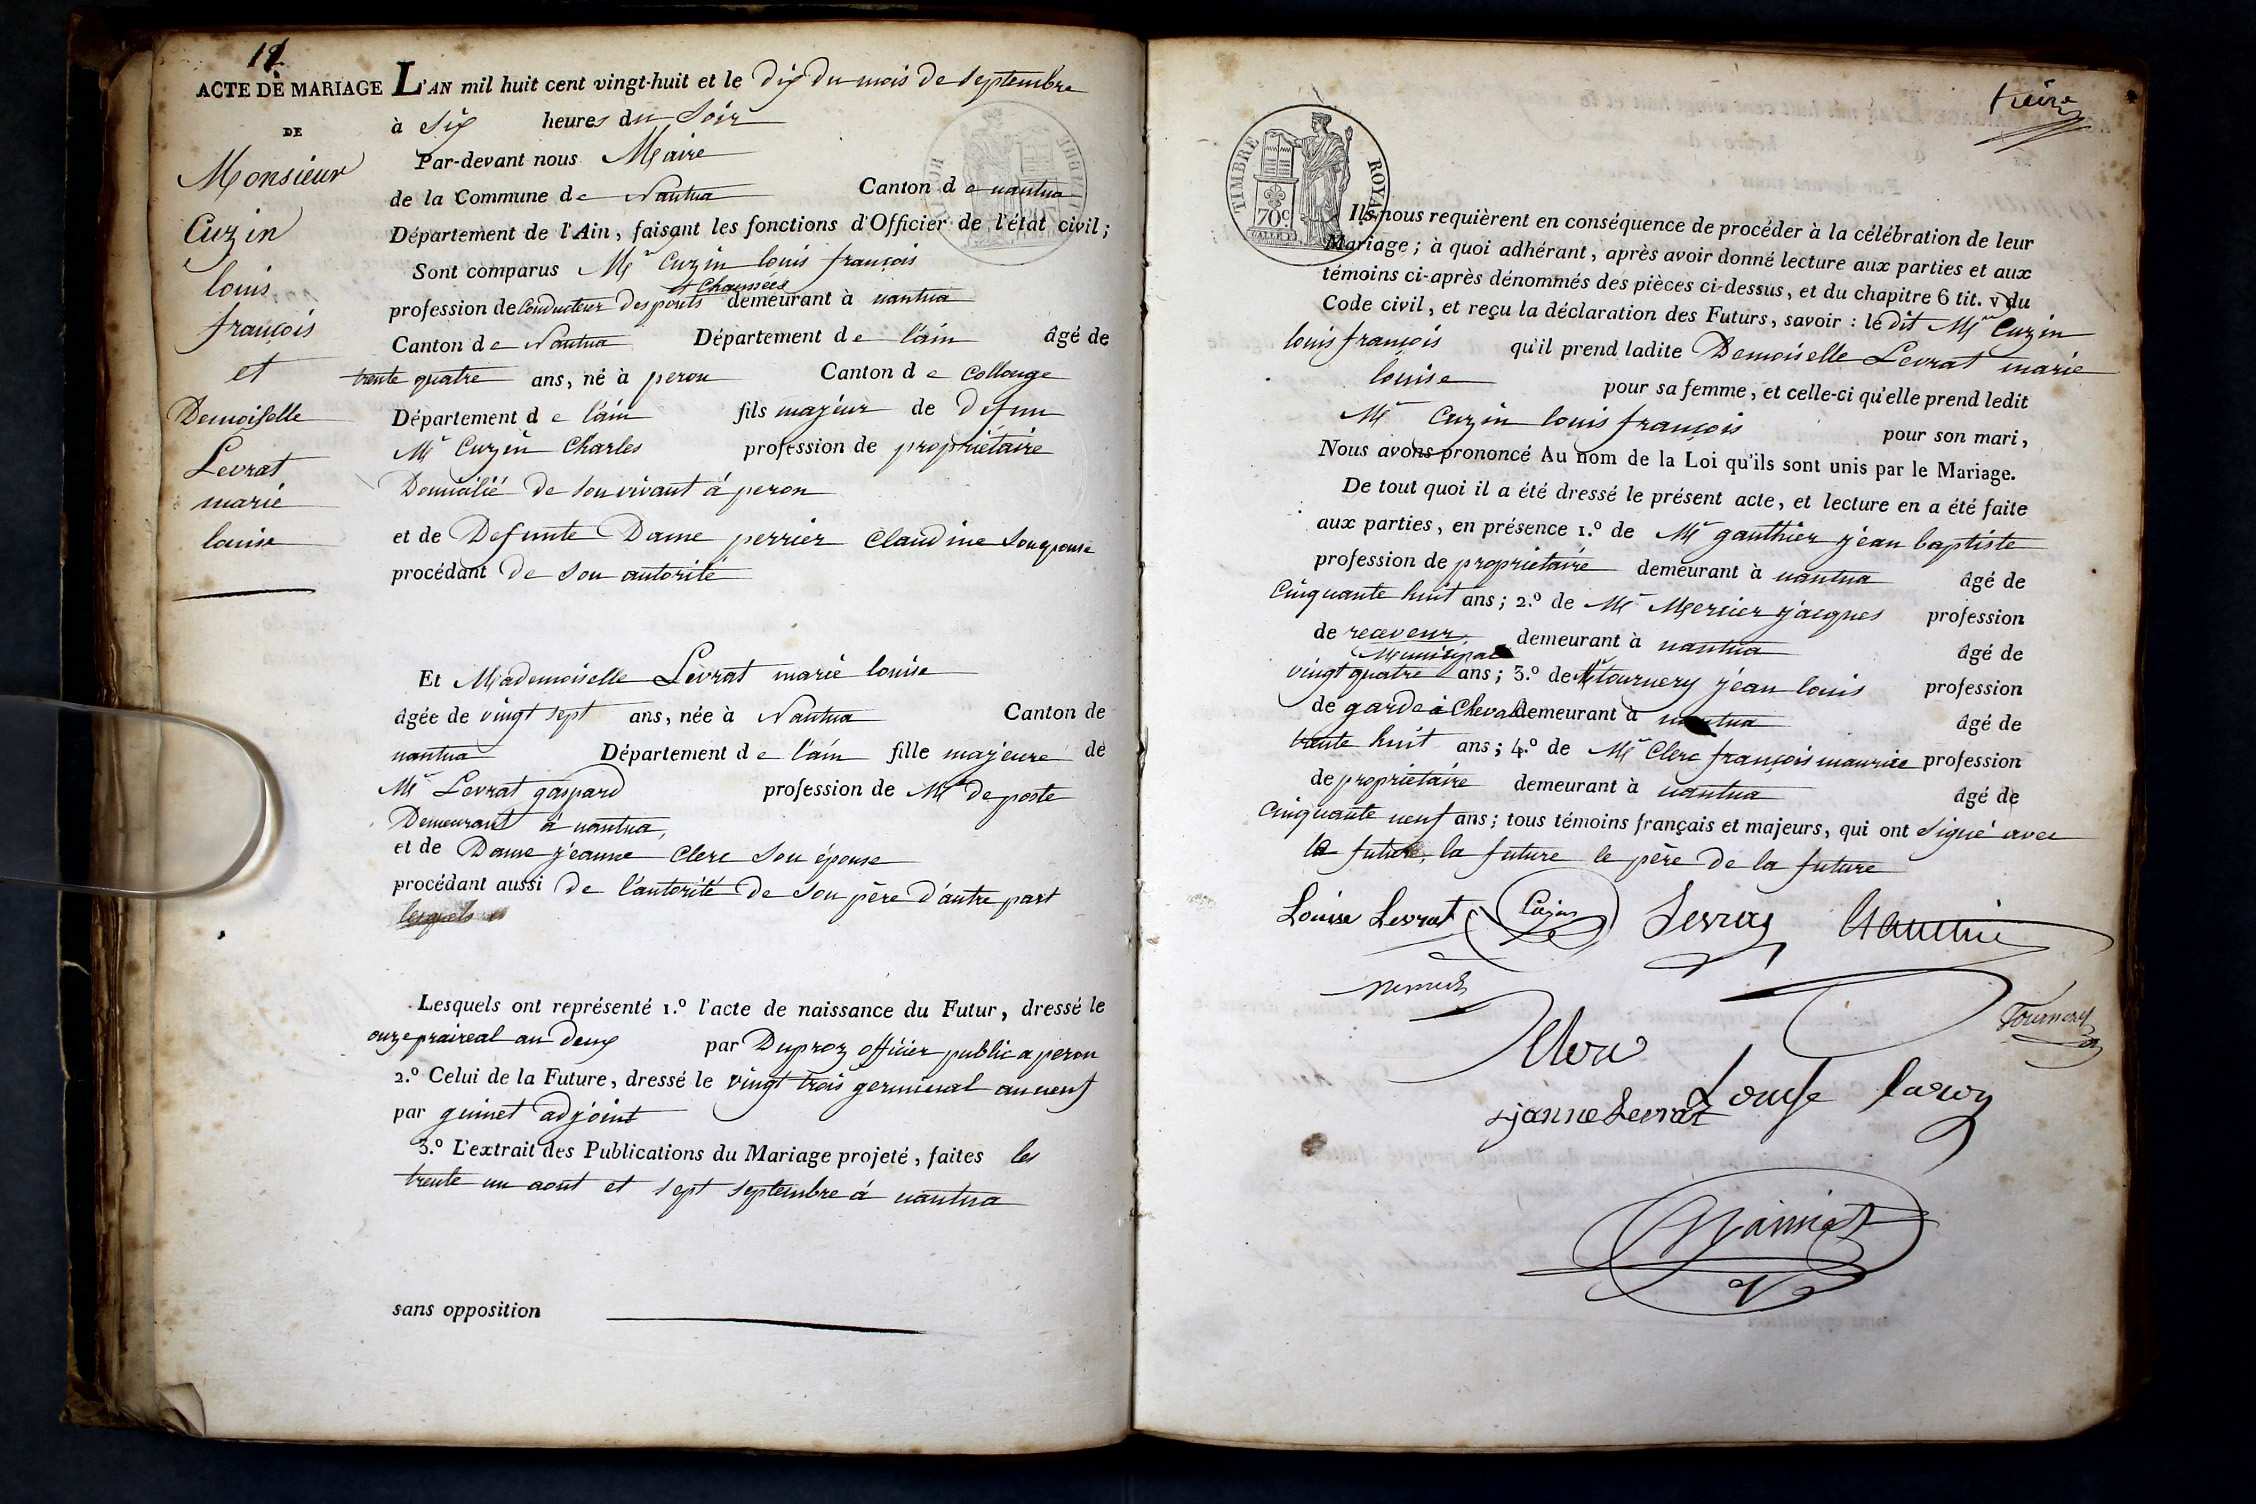 ACTE DE MARIAGE
DE
Monsieur
Cuzin
louis
françois
et
Demoiselle
Levrat
marie
louise
L'AN mil huit cent vingt-huit et le dix du mois de septembre
à Six heures du Soir
Par-devant nous Maire
de la Commune de Nantua Canton de nantua
Département de l'Ain, faisant les fonctions d'Officier de l'état civil;
Sont comparus Mr Cuzin louis françois
& Chaussées
profession de Conducteur des ponts demeurant à nantua
Canton de Nantua Département de l'ain âgé de
trente quatre ans, né à peron Canton de Collonge
Département de l'ain fils majeur de defun
Mr Cuzin Charles profession de propriétaire
Domicilié de son vivant à peron
et de Defunte Dame perrier Claudine son epouse
procédant de son autorité
Et Mademoiselle Levrat marie louise
âgée de vingt sept ans, née à Nantua Canton de
nantua Département de l'ain fille majeure de
Mr Levrat gaspard profession de Mtre de poste
Demeurant à nantua,
et de Dame jeanne Clerc son épouse
procédant aussi de l'autorité de son père d'autre part
lesquels
Lesquels ont représenté 1.º l'acte de naissance du Futur, dressé le
onze praireal an deux par Duproz officier public a peron
2.º Celui de la Future, dressé le vingt trois germinal an neuf
par guinet adjoint
3.º L'extrait des Publications du Mariage projeté, faites les
trente un aout et sept septembre à nantua
sans opposition
treize
TIMBRE ROYAL
70c
Ils nous requièrent en conséquence de procéder à la célébration de leur
Mariage; à quoi adhérant, après avoir donné lecture aux parties et aux
témoins ci-après dénommés des pièces ci-dessus, et du chapitre 6 tit. v du
Code civil, et reçu la déclaration des Futurs, savoir : le dit Mr Cuzin
louis françois qu'il prend ladite Demoiselle Levrat marie
louise pour sa femme, et celle-ci qu'elle prend ledit
Mr Cuzin louis françois pour son mari,
Nous avons prononcé Au nom de la Loi qu'ils sont unis par le Mariage.
De tout quoi il a été dressé le présent acte, et lecture en a été faite
aux parties, en présence 1.º de Mr gauthier jean baptiste
profession de propriétaire demeurant à nantua âgé de
Cinquante huit ans; 2.º de Mr Mercier jacques profession
de receveur demeurant à nantua âgé de
Municipal
vingt quatre ans; 3.º de Mr tournery jean louis profession
de garde à Cheval demeurant à nantua âgé de
trente huit ans; 4.º de Mr Clerc françois maurice profession
de propriétaire demeurant à nantua âgé de
Cinquante neuf ans; tous témoins français et majeurs, qui ont signé avec
le futur, la future le père de la future
Louise Levrat Cuzin Levrat Gauthier
Tournery
Clerc
Louise
janne Levrat